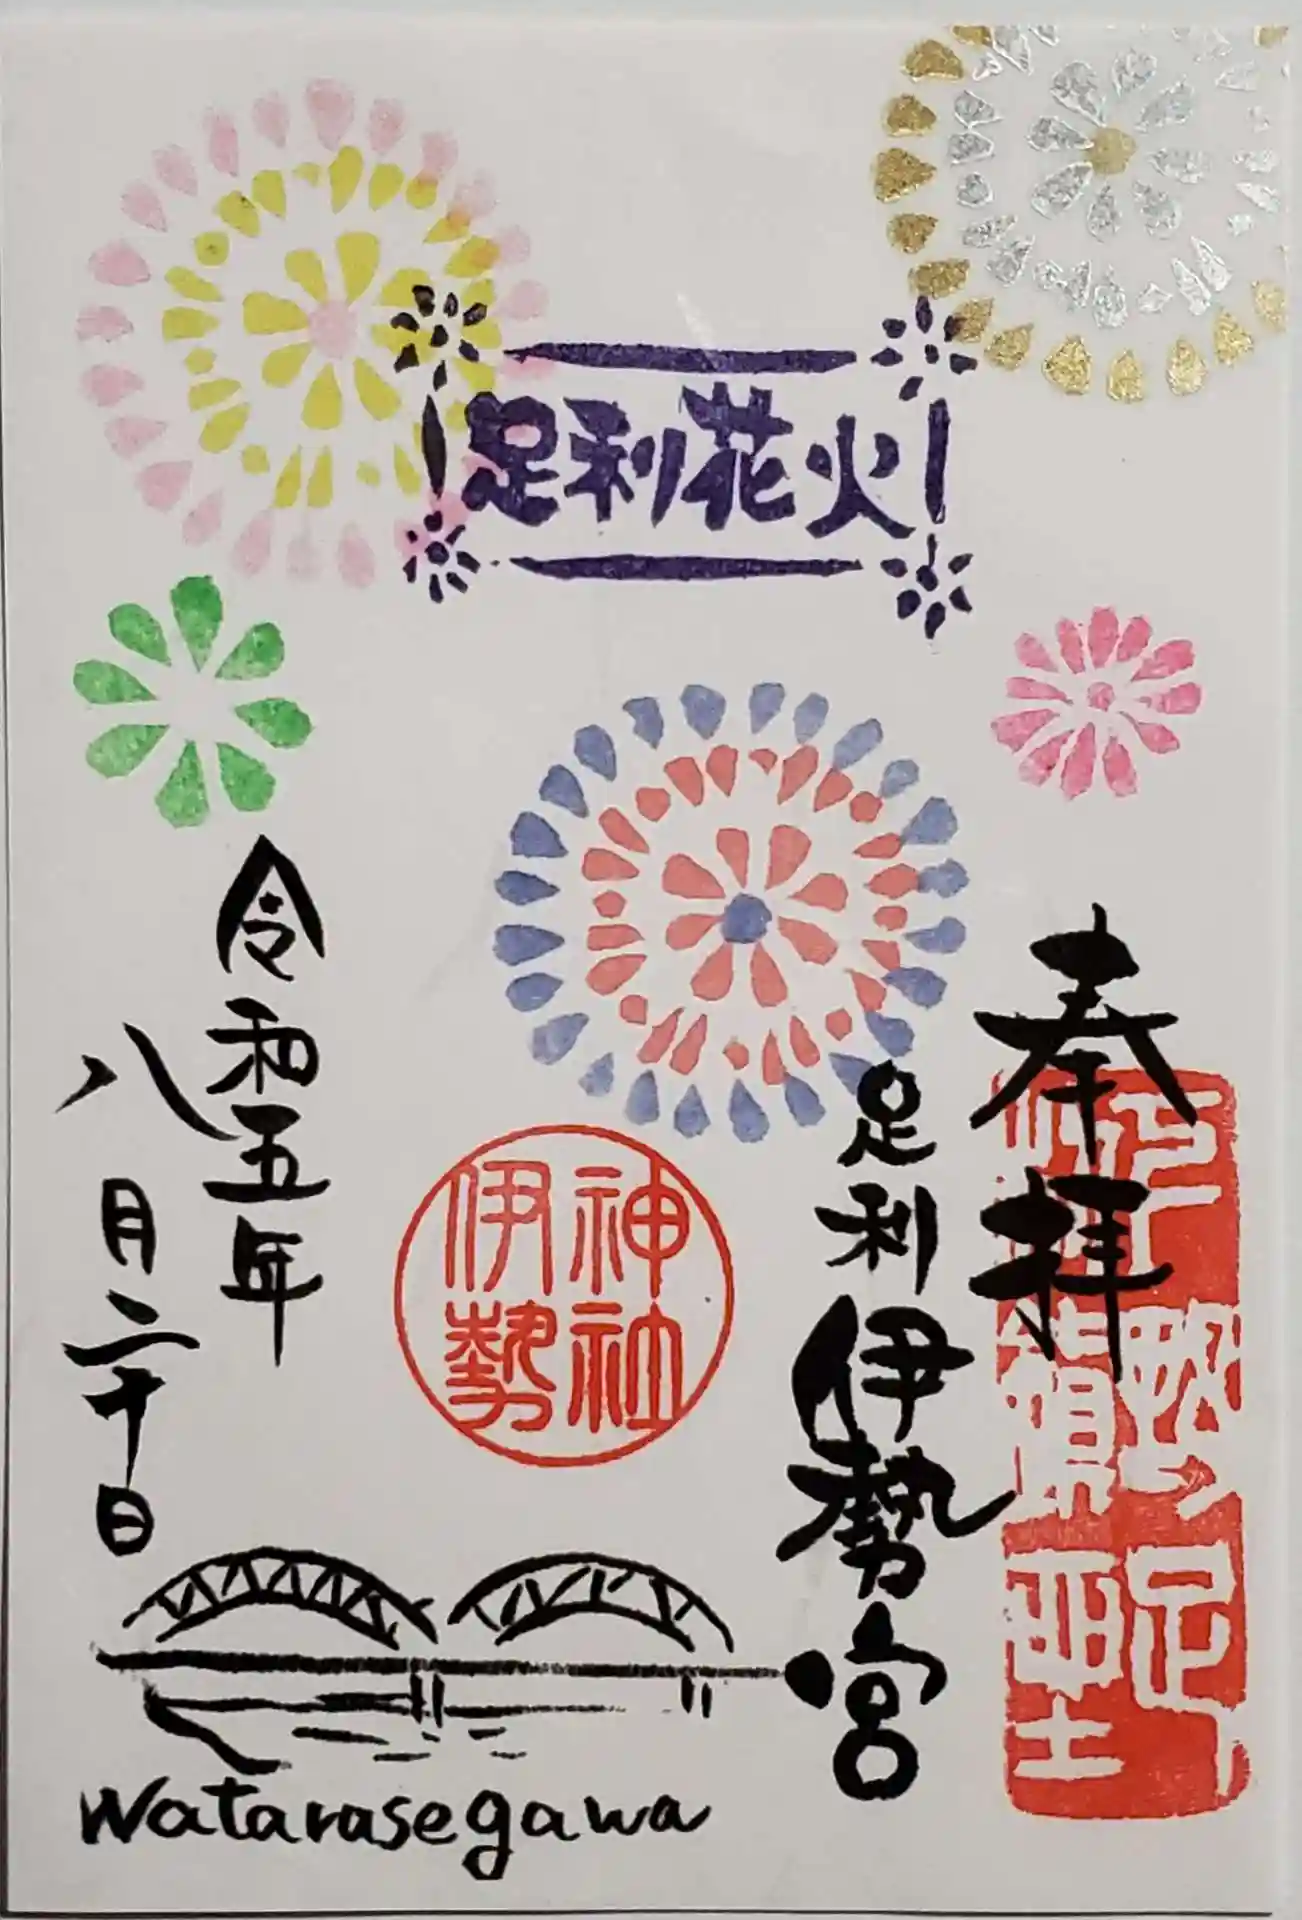 足利花火
奉拝
足利伊勢宮
神社
伊勢
令和五年
八月二十日
Watarasegawa